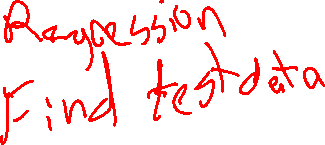 Regression
Find testdata